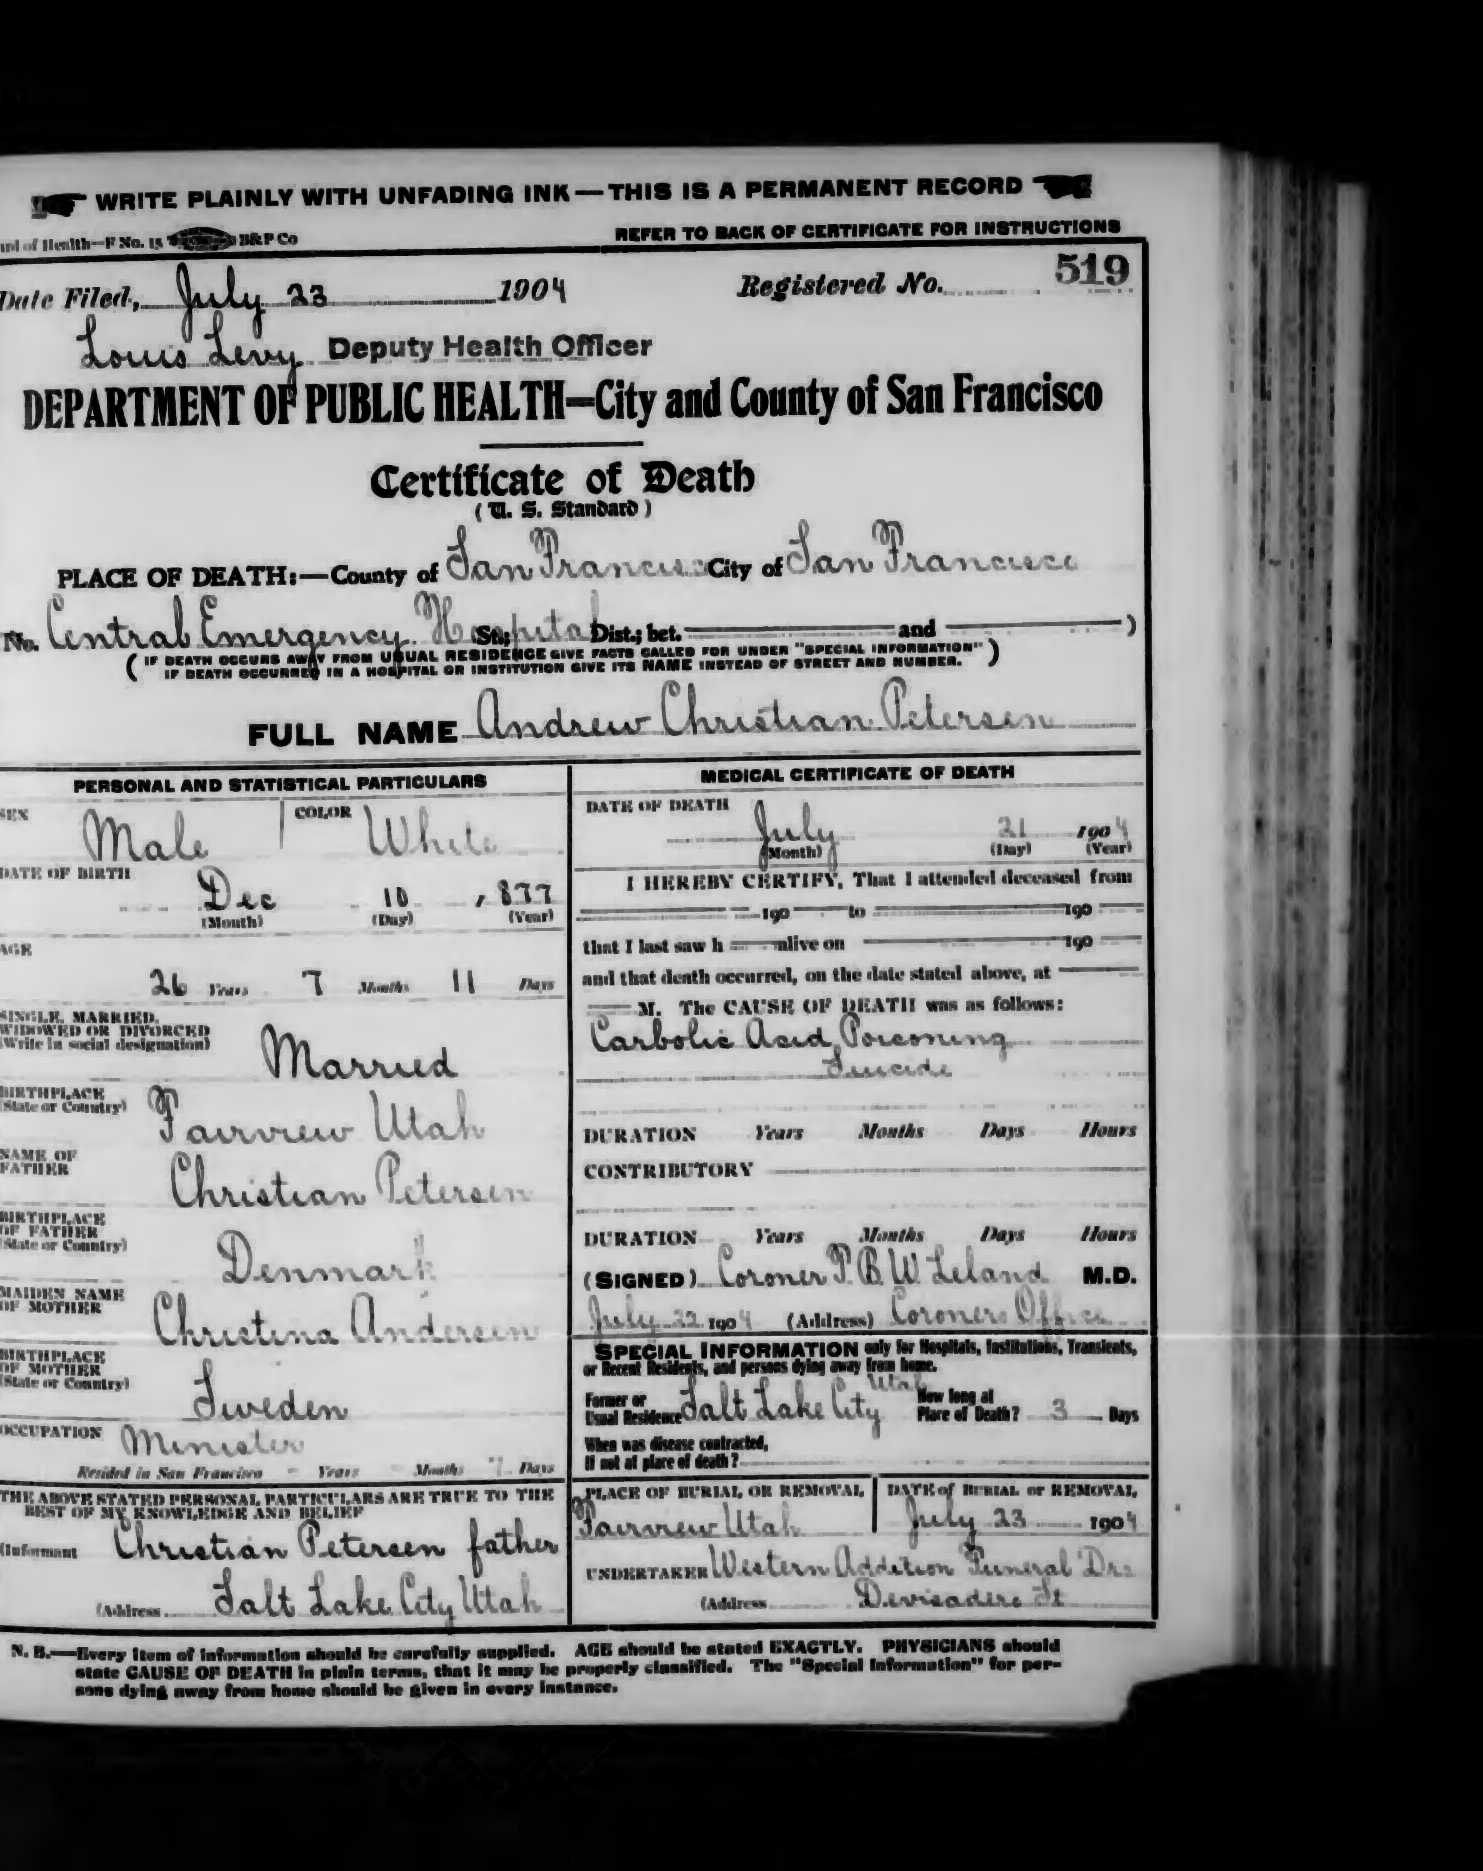 WRITE PLAINLY WITH UNFADING INK—THIS IS A PERMANENT RECORD
of Health—F No. 15 B&P Co
REFER TO BACK OF CERTIFICATE FOR INSTRUCTIONS
Date Filed, July 23 1904 Registered No. 519
Louis Levy Deputy Health Officer
DEPARTMENT OF PUBLIC HEALTH—City and County of San Francisco
Certificate of Death
(U. S. Standard)
PLACE OF DEATH:—County of San Francisco City of San Francisco
No. Central Emergency Hospital St.; Dist.; bet. and )
( IF DEATH OCCURS AWAY FROM USUAL RESIDENCE GIVE FACTS CALLED FOR UNDER "SPECIAL INFORMATION" )
IF DEATH OCCURRED IN A HOSPITAL OR INSTITUTION GIVE ITS NAME INSTEAD OF STREET AND NUMBER.
FULL NAME Andrew Christian Petersen
PERSONAL AND STATISTICAL PARTICULARS
SEX Male COLOR White
DATE OF BIRTH
Dec 10 , 877
(Month) (Day) (Year)
AGE
26 Years 7 Months 11 Days
SINGLE, MARRIED,
WIDOWED OR DIVORCED
(Write in social designation)
Married
BIRTHPLACE
(State or Country)
Fairview Utah
NAME OF
FATHER
Christian Petersen
BIRTHPLACE
OF FATHER
(State or Country)
Denmark
MAIDEN NAME
OF MOTHER
Christina Andersen
BIRTHPLACE
OF MOTHER
(State or Country)
Sweden
OCCUPATION Minister
Resided in San Francisco – Years – Months Days
THE ABOVE STATED PERSONAL PARTICULARS ARE TRUE TO THE
BEST OF MY KNOWLEDGE AND BELIEF
(Informant Christian Petersen father
(Address Salt Lake City Utah
MEDICAL CERTIFICATE OF DEATH
DATE OF DEATH
July 21 1904
(Month) (Day) (Year)
I HEREBY CERTIFY, That I attended deceased from
190 to 190
that I last saw h alive on 190
and that death occurred, on the date stated above, at
M. The CAUSE OF DEATH was as follows:
Carbolic Acid Poisoning
Suicide
DURATION Years Months Days Hours
CONTRIBUTORY
DURATION Years Months Days Hours
(SIGNED) Coroner T. B. W. Leland M.D.
July 22 1904 (Address) Coroners Office
SPECIAL INFORMATION only for Hospitals, Institutions, Transients,
or Recent Residents, and persons dying away from home.
Former or
Usual Residence Salt Lake City Utah How long at
Place of Death? 3 Days
When was disease contracted,
If not at place of death?
PLACE OF BURIAL OR REMOVAL
Fairview Utah
DATE of BURIAL or REMOVAL
July 23 1904
UNDERTAKER Western Addition Funeral Drs
(Address Devisadero St
N. B.—Every item of information should be carefully supplied. AGE should be stated EXACTLY. PHYSICIANS should
state CAUSE OF DEATH in plain terms, that it may be properly classified. The "Special Information" for per-
sons dying away from home should be given in every instance.